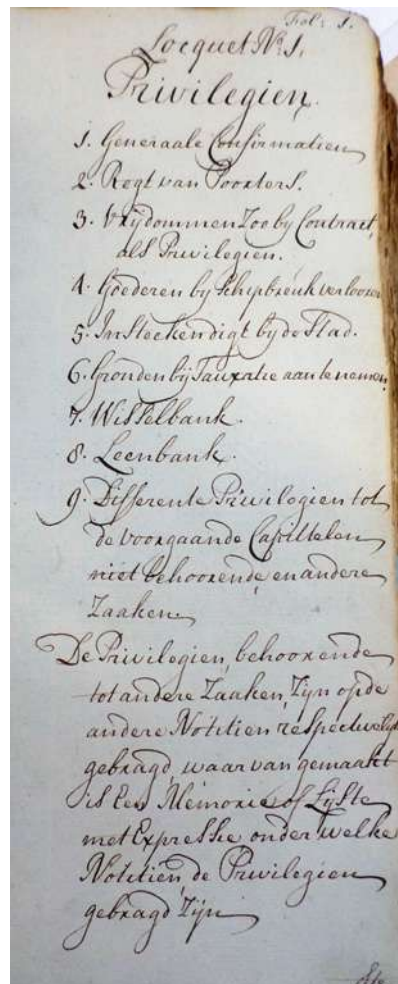 Fol: 1.
Locquet No. 1.
Privilegien.
1. Generaale Confirmatien
2. Regt van Poorters.
3. Vrijdommen Zoo by Contract,
als Privilegien.
4. Goederen by Schipbreuk verlooren
5. Insteekendigt by de Stad.
6. Gronden bij Tauxatie aan te nemen.
7. Wisselbank.
8. Leenbank.
9. Differente Privilegien tot
de voorgaande Capittelen
niet behoorende, en andere
Zaaken.
De Privilegien, behoorende
tot andere Zaaken, Zijn op de
andere Notitien respectivelijk
gebragd, waar van gemaakt
is Een Memorie of Lijste
met Expressie onder welke
Notitien, de Privilegien
gebragd Zijn